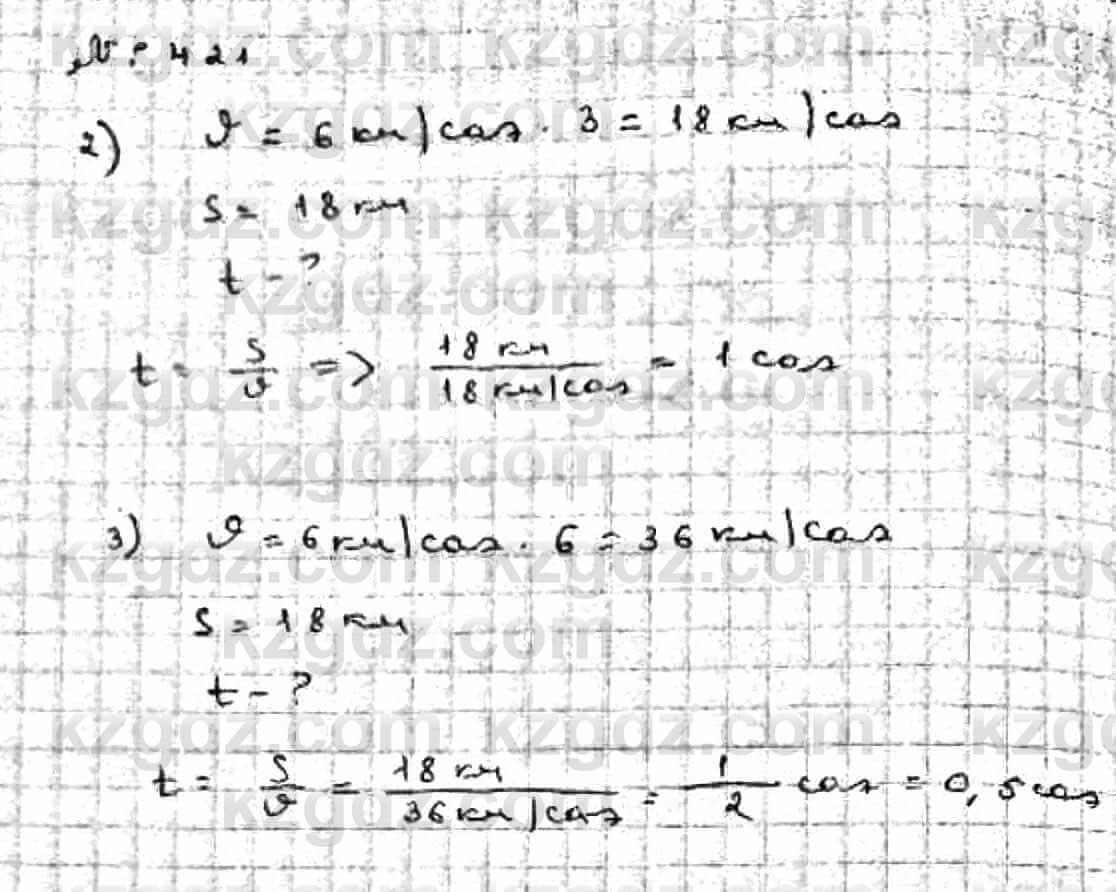 № 421
2) υ = 6 км/сағ · 3 = 18 км/сағ
S = 18 км
t - ?
t = S/υ => 18 км / 18 км/сағ = 1 сағ
3) υ = 6 км/сағ · 6 = 36 км/сағ
S = 18 км
t - ?
t = S/υ = 18 км / 36 км/сағ = 1/2 сағ = 0,5 сағ
kzgdz.com